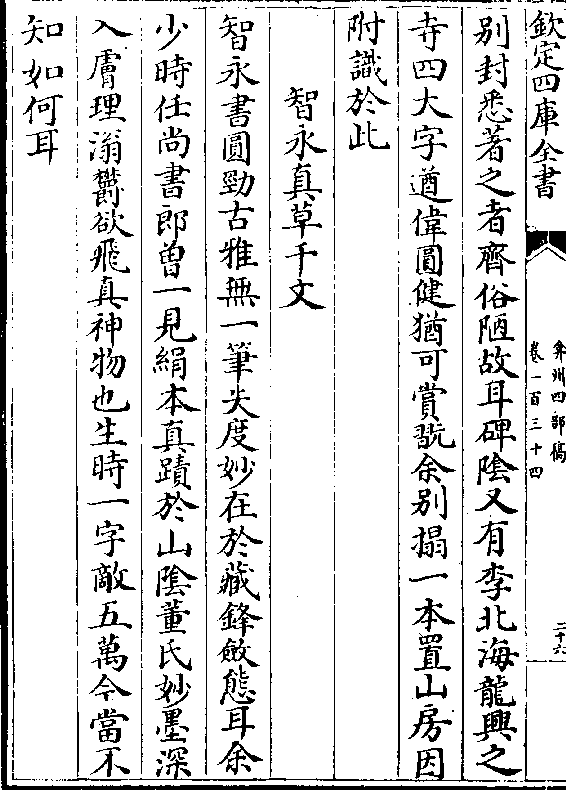 欽定四庫全書
弇州四部稿
卷一百三十四
二十六
别封悉著之者齊俗陋故耳碑陰又有李北海龍興之
寺四大字遒偉圓健猶可賞翫余别搨一本置山房因
附識於此
智永真草千文
智永書圓勁古雅無一筆失度妙在於藏鋒斂態耳余
少時任尚書郎曾一見絹本真蹟於山陰董氏妙墨深
入膚理滃欝欲飛真神物也生時一字敵五萬今當不
知如何耳